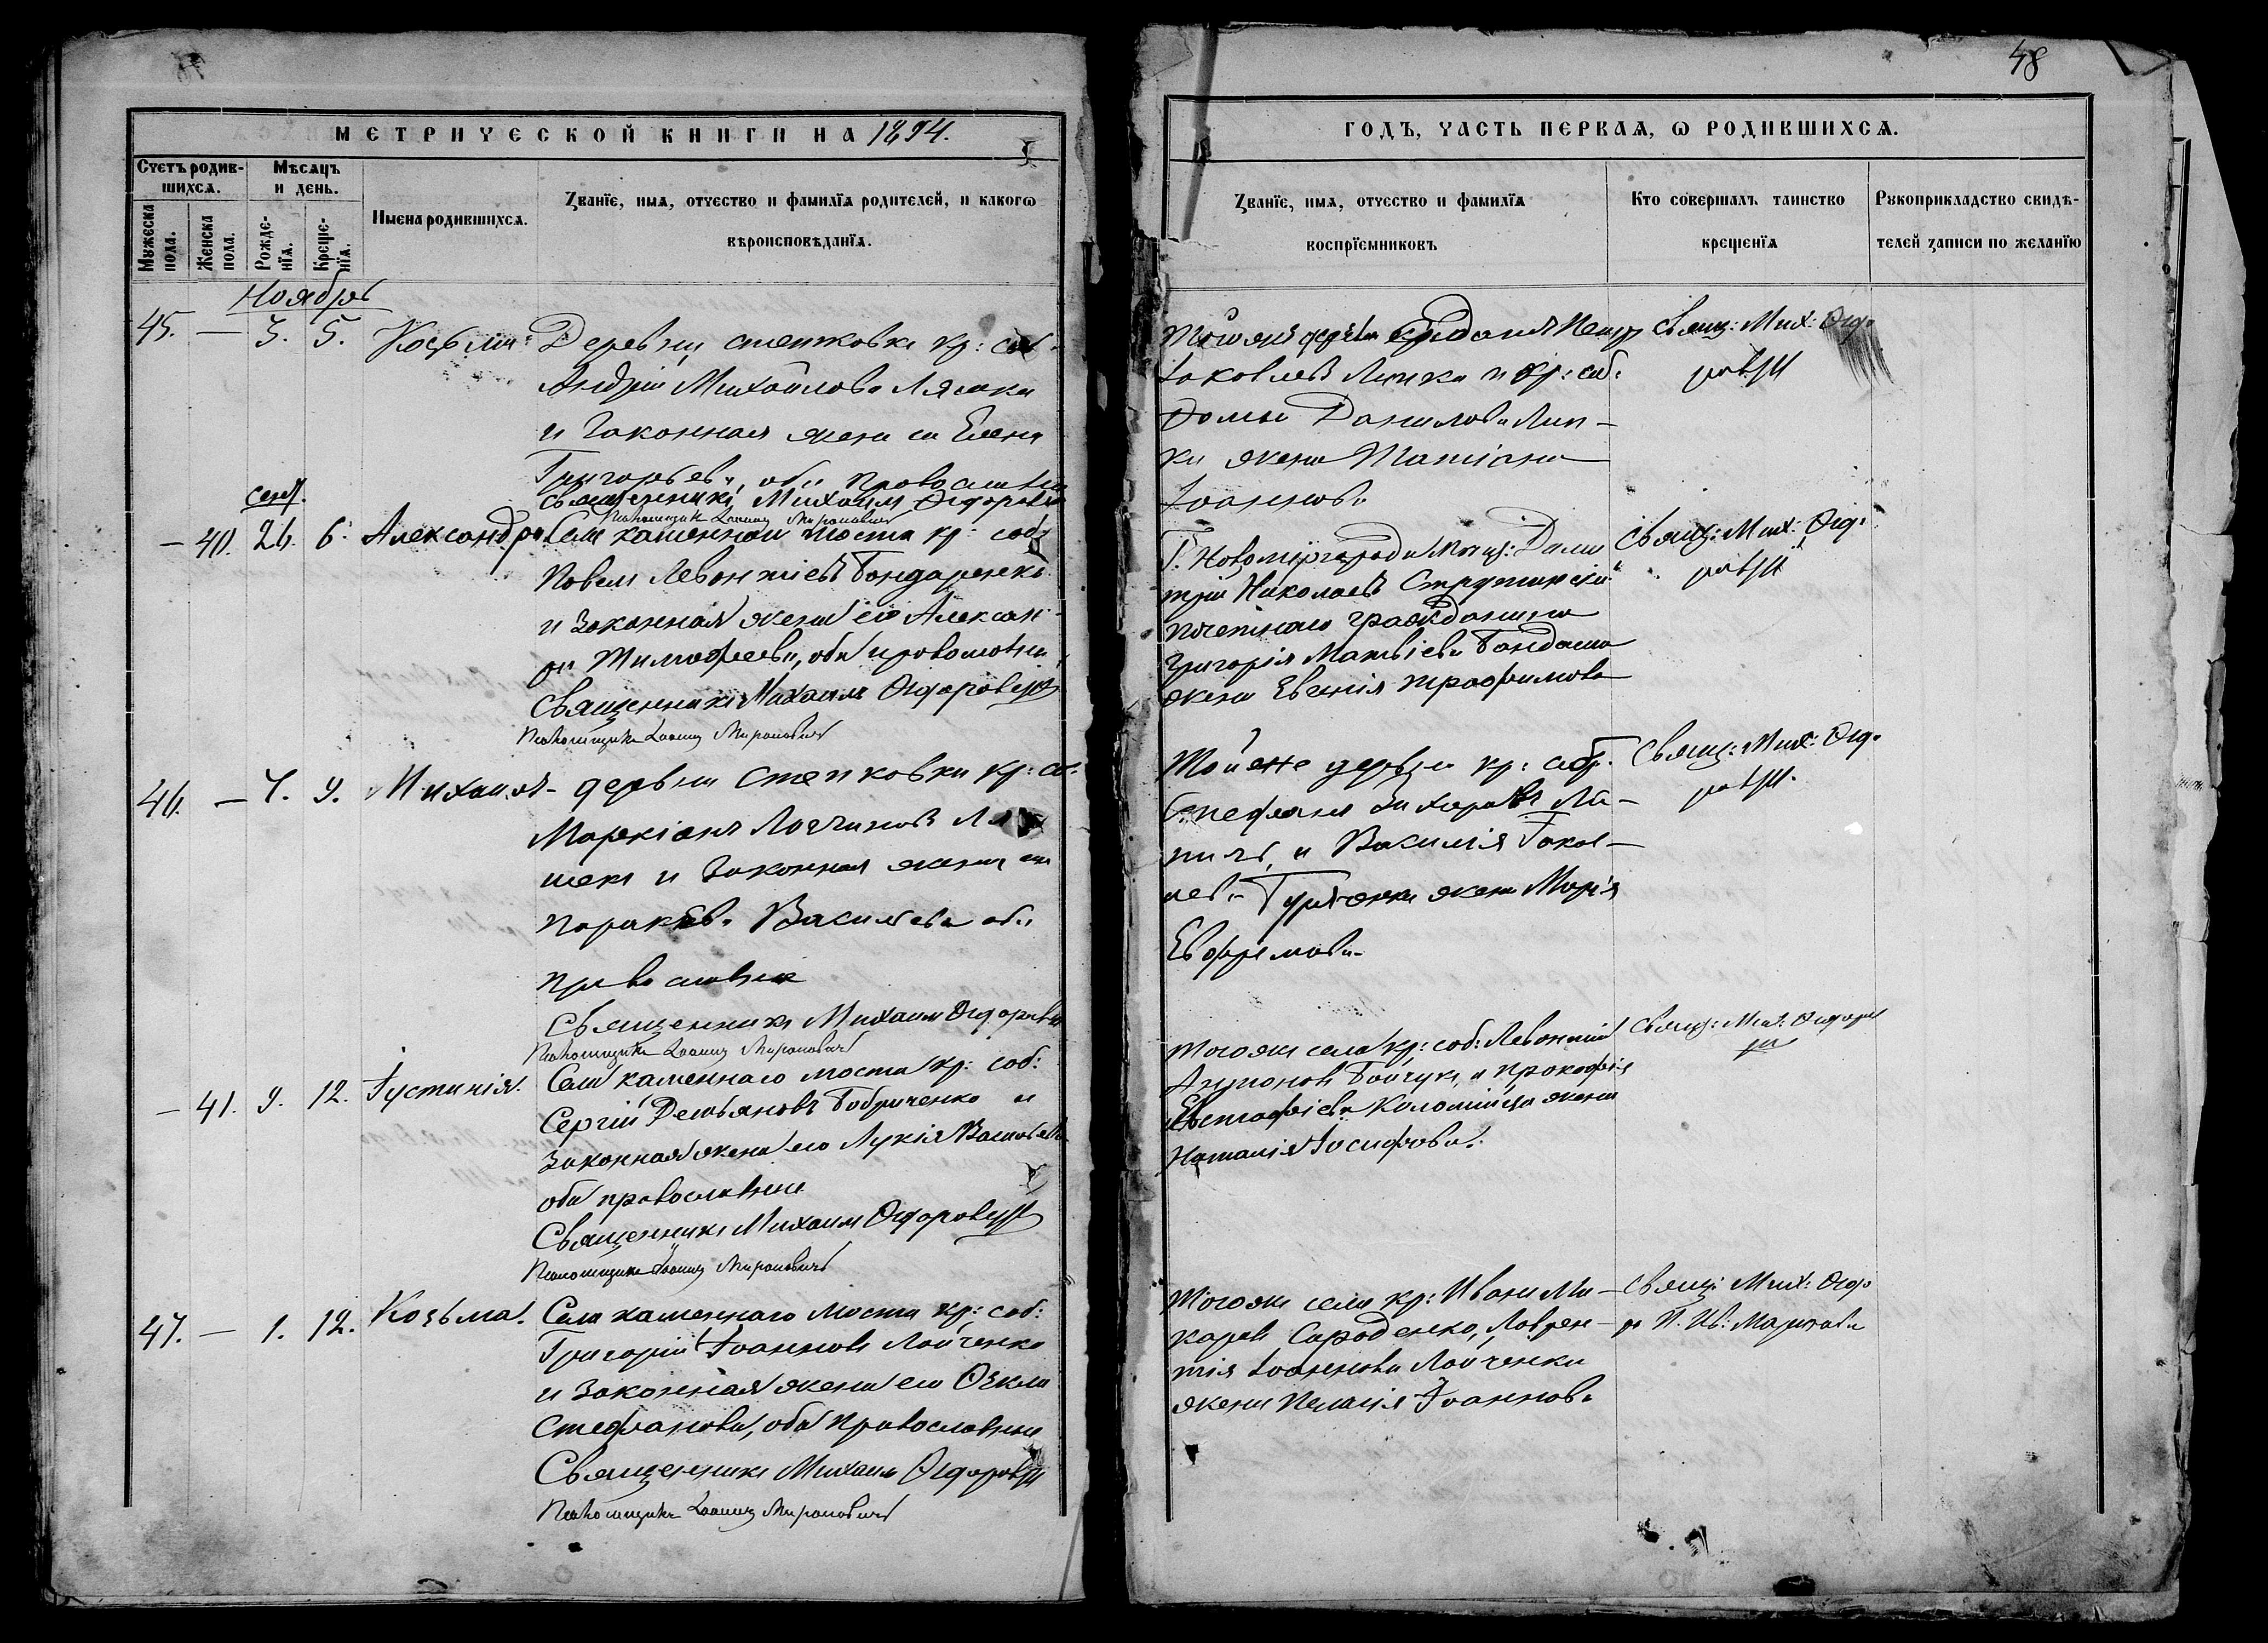 48
МЕТРИЧЕСКОЙ КНИГИ НА 1894.
ГОДЪ, ЧАСТЬ ПЕРВАѦ, Ѡ РОДИВШИХСѦ.
Счетъ родив-
шихсѧ.
Мѣсяцъ
и день.
Мужеска
пола.
Женска
пола.
Рожде-
нїѧ.
Креще-
нїѧ.
Имена родившихсѧ.
Званїе, имѧ, отчество и фамилїѧ родителей, и какогѡ
вѣроисповѣданїѧ.
Званїе, имѧ, отчество и фамилїѧ
воспрїемниковъ
Кто совершалъ таинство
крещенїѧ
Рукоприкладство свидѣ-
телей записи по желанїю
Ноябрь
45. — 3. 5. Косьма
Деревни степковки кр: соб.
Андрій Михайловъ Ляшка
и законная жена его Елена
Григорьева, оба православны
Священникъ Михаилъ Федоровичъ
Псаломщикъ Іоаннъ Мироновичъ
Іаковлевъ Липка и кр: соб:
Фомы Данилова Лип-
ки жена Татіана
Іоаннова
Свящ: Мих: Фед.
ровичъ
сент.
— 40. 26. 6. Александра
Села каменнаго моста кр: соб:
Павелъ Левонтіевъ Бондаренко
и законная жена его Алексан-
ра Тимофеева, оба православны
Священникъ Михаилъ Федоровичъ
Псаломщикъ Іоаннъ Мироновичъ
Г. Новомиргорода мѣщ: Дими
трій Николаевъ
почетнаго гражданина
Григорія Матвіева Бондаша
жена Евгенія Трофимова
Свящ: Мих: Фед.
ровичъ
46. — 7. 9. Михаилъ
деревни степковки кр: соб.
Маркіанъ Логгиновъ Ля
шекъ и законная жена его
Параскева Васильева оба
православные
Священникъ Михаилъ Федоровичъ
Псаломщикъ Іоаннъ Мироновичъ
Той же деревни кр: соб:
Стефанъ Захаровъ
и Василія Іаков-
лева жена Марія
Евфремова
Свящ: Мих: Фед.
ровичъ.
— 41. 9. 12. Іустинія.
Села каменнаго моста кр: соб:
Сергій Демьяновъ Бобриченко и
законная жена его Лукія
оба православные
Священникъ Михаилъ Федоровичъ
Псаломщикъ Іоаннъ Мироновичъ
Тогоже села кр: соб: Левонтій
Бойчукъ, и Прокофія
Евстафіева Коломійца жена
Наталія Іосифова.
Свящ: Мих: Федоро
47. — 1. 12. Козьма.
Села каменнаго моста кр: соб:
Григорій Іоанновъ Лойченко
и законная жена его Фекла
Стефанова, оба православны
Священникъ Михаилъ Федоровичъ
Псаломщикъ Іоаннъ Мироновичъ
Тогоже села кр: Иванъ Ма-
каровъ Сароденко, Лаврен-
тія Іоаннова Лойченка
жена Пелагія Іоаннова
Свящ: Мих: Федо